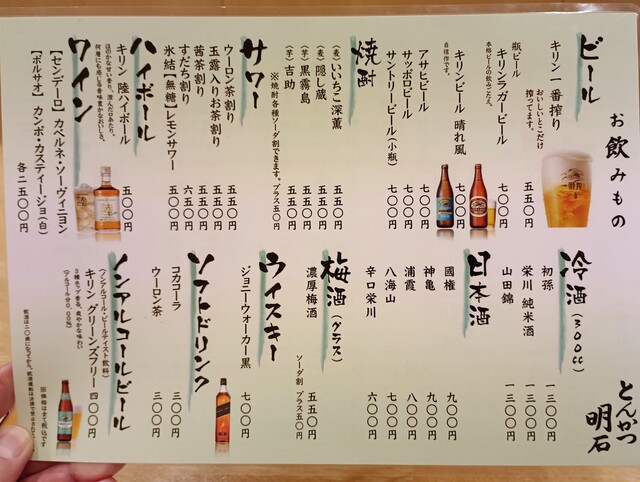 お飲みもの
ビール
キリン一番搾り 五五〇円
おいしいとこだけ
搾ってます。
瓶ビール
キリンラガービール 七〇〇円
本格ビールの飲みごたえ。
キリンビール 晴れ風 七〇〇円
自信作です。
アサヒビール 七〇〇円
サッポロビール 七〇〇円
サントリービール(小瓶) 七〇〇円
焼酎
(麦)いいちこ深薫 五五〇円
(麦)隠し蔵 五五〇円
(芋)黒霧島 五五〇円
(芋)吉助 五五〇円
※焼酎各種ソーダ割できます。プラス五〇円
サワー
ウーロン茶割り 五五〇円
玉露入りお茶割り 五五〇円
茜茶割り 六五〇円
すだち割り 五五〇円
氷結【無糖】レモンサワー 五〇〇円
ハイボール
キリン 陸ハイボール 五〇〇円
ほのかな甘い香り、澄んだ口あたり。
ワイン
【センデーロ】カベルネ・ソーヴィニヨン
【ボルサオ】カンポ・カスティージョ(白)
各二五〇〇円
冷酒(300cc)
初孫 一三〇〇円
栄川 純米酒 一三〇〇円
山田錦 一三〇〇円
日本酒
國権 九〇〇円
神亀 九〇〇円
浦霞 八〇〇円
八海山 七〇〇円
辛口栄川 六〇〇円
梅酒(グラス)
濃厚梅酒 五五〇円
ソーダ割 プラス五〇円
ウイスキー
ジョニーウォーカー黒 七〇〇円
ソフトドリンク
コカコーラ 三〇〇円
ウーロン茶 三〇〇円
ノンアルコールビール
(ノンアルコール・ビールテイスト飲料)
キリン グリーンズフリー 四〇〇円
3種ホップ香る、爽やかな味わい
(アルコール分0.00%)
※価格は全て税込です
とんかつ
明石